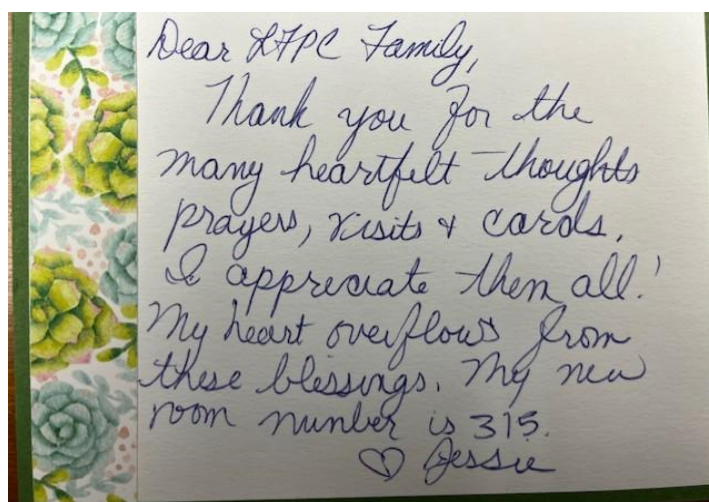 Dear LFPC Family,
Thank you for the
many heartfelt thoughts
prayers, visits & cards.
I appreciate them all!
My heart overflows from
these blessings. My new
room number is 315.
♡ Jessie